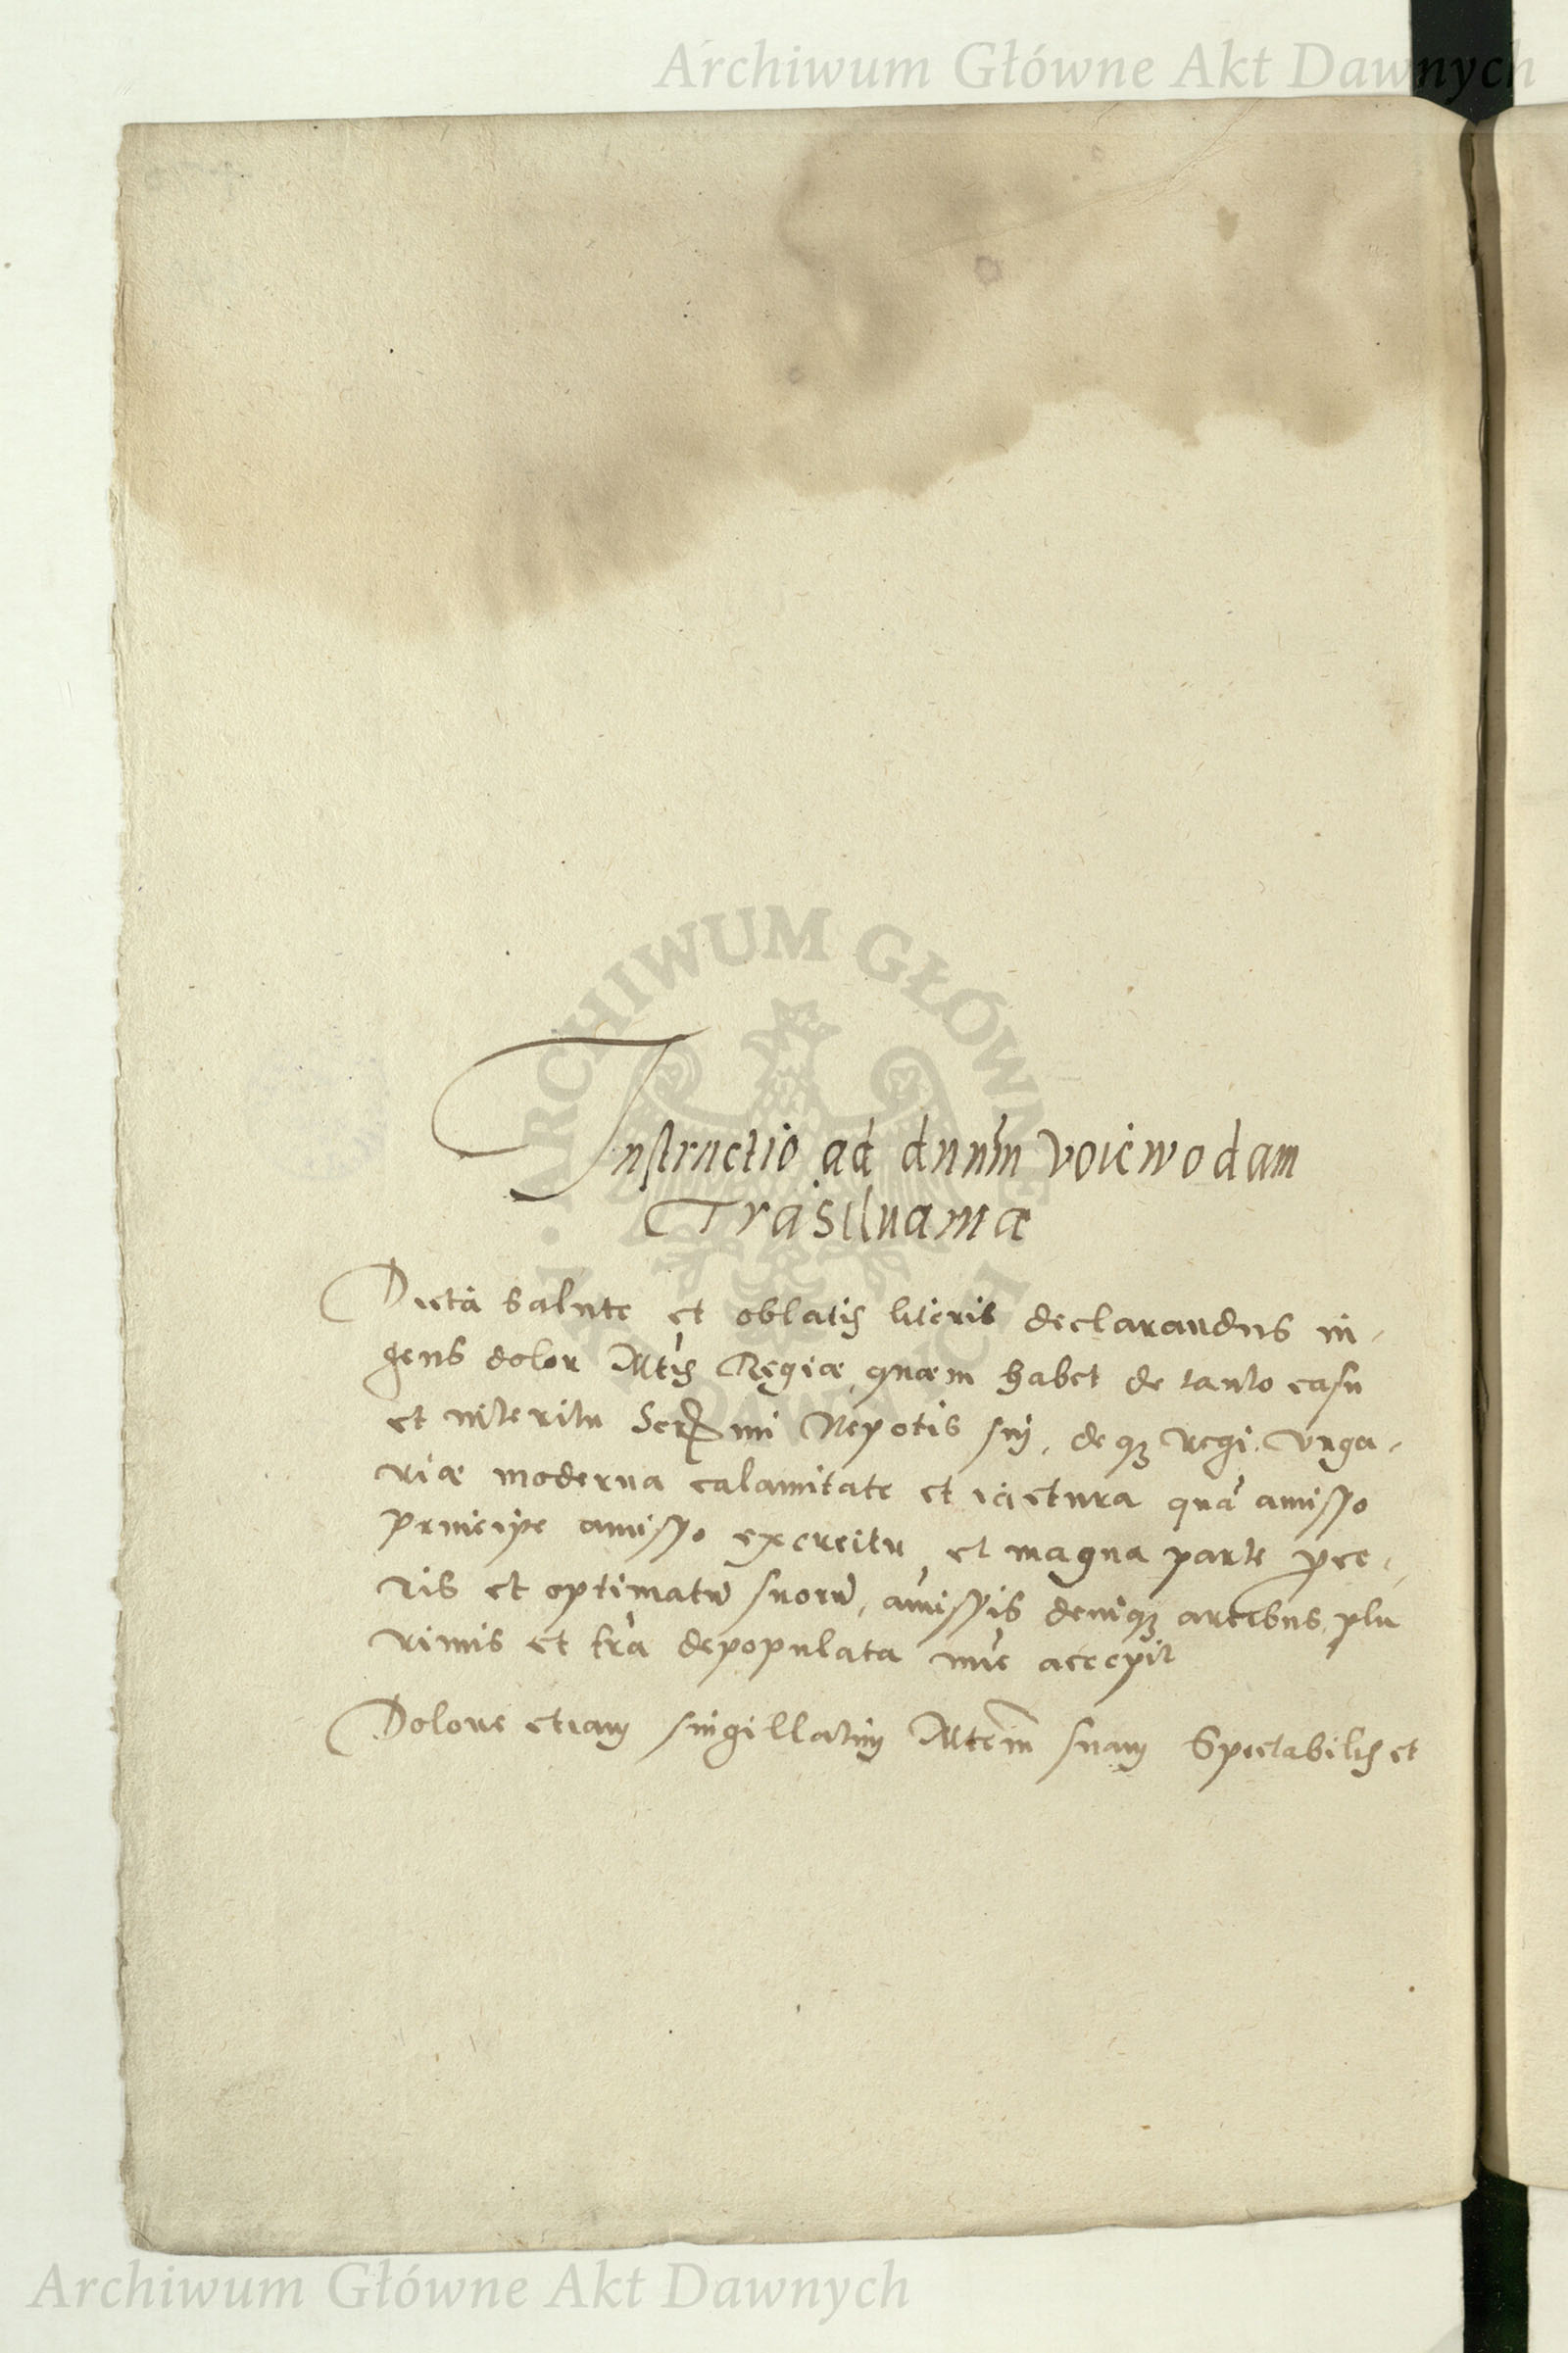 Archiwum Główne Akt Dawnych
ARCHIWUM GŁÓWNE AKT DAWNYCH
Instructio ad dnum voiewodam
Trāsiluaniæ
Dicta salute et oblatis literis declarandus in-
gens dolor Mtis Regiæ quem habet de tanto casu
et interitu Sermi Nepotis sui, deqꝫ regi. Vnga-
riæ moderna calamitate et iactura quā amisso
principe amisso exercitu et magna parte proce-
ris et optimatū suorū, amissis deniqꝫ arcibus plu
rimis et trā depopulata nūc accepit
Dolore etiam singillatim Mtem suam Spectabilis et
Archiwum Główne Akt Dawnych